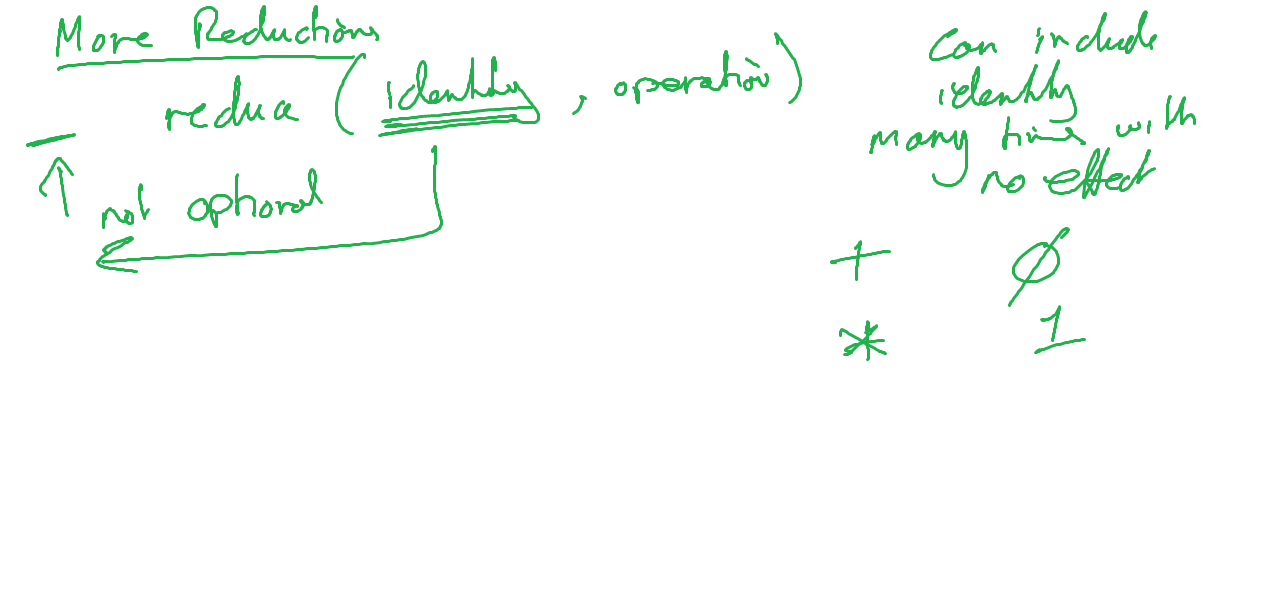 More Reductions
reduce (identity, operation)
not optional
can include
identity
many times with
no effect
+ 0
* 1